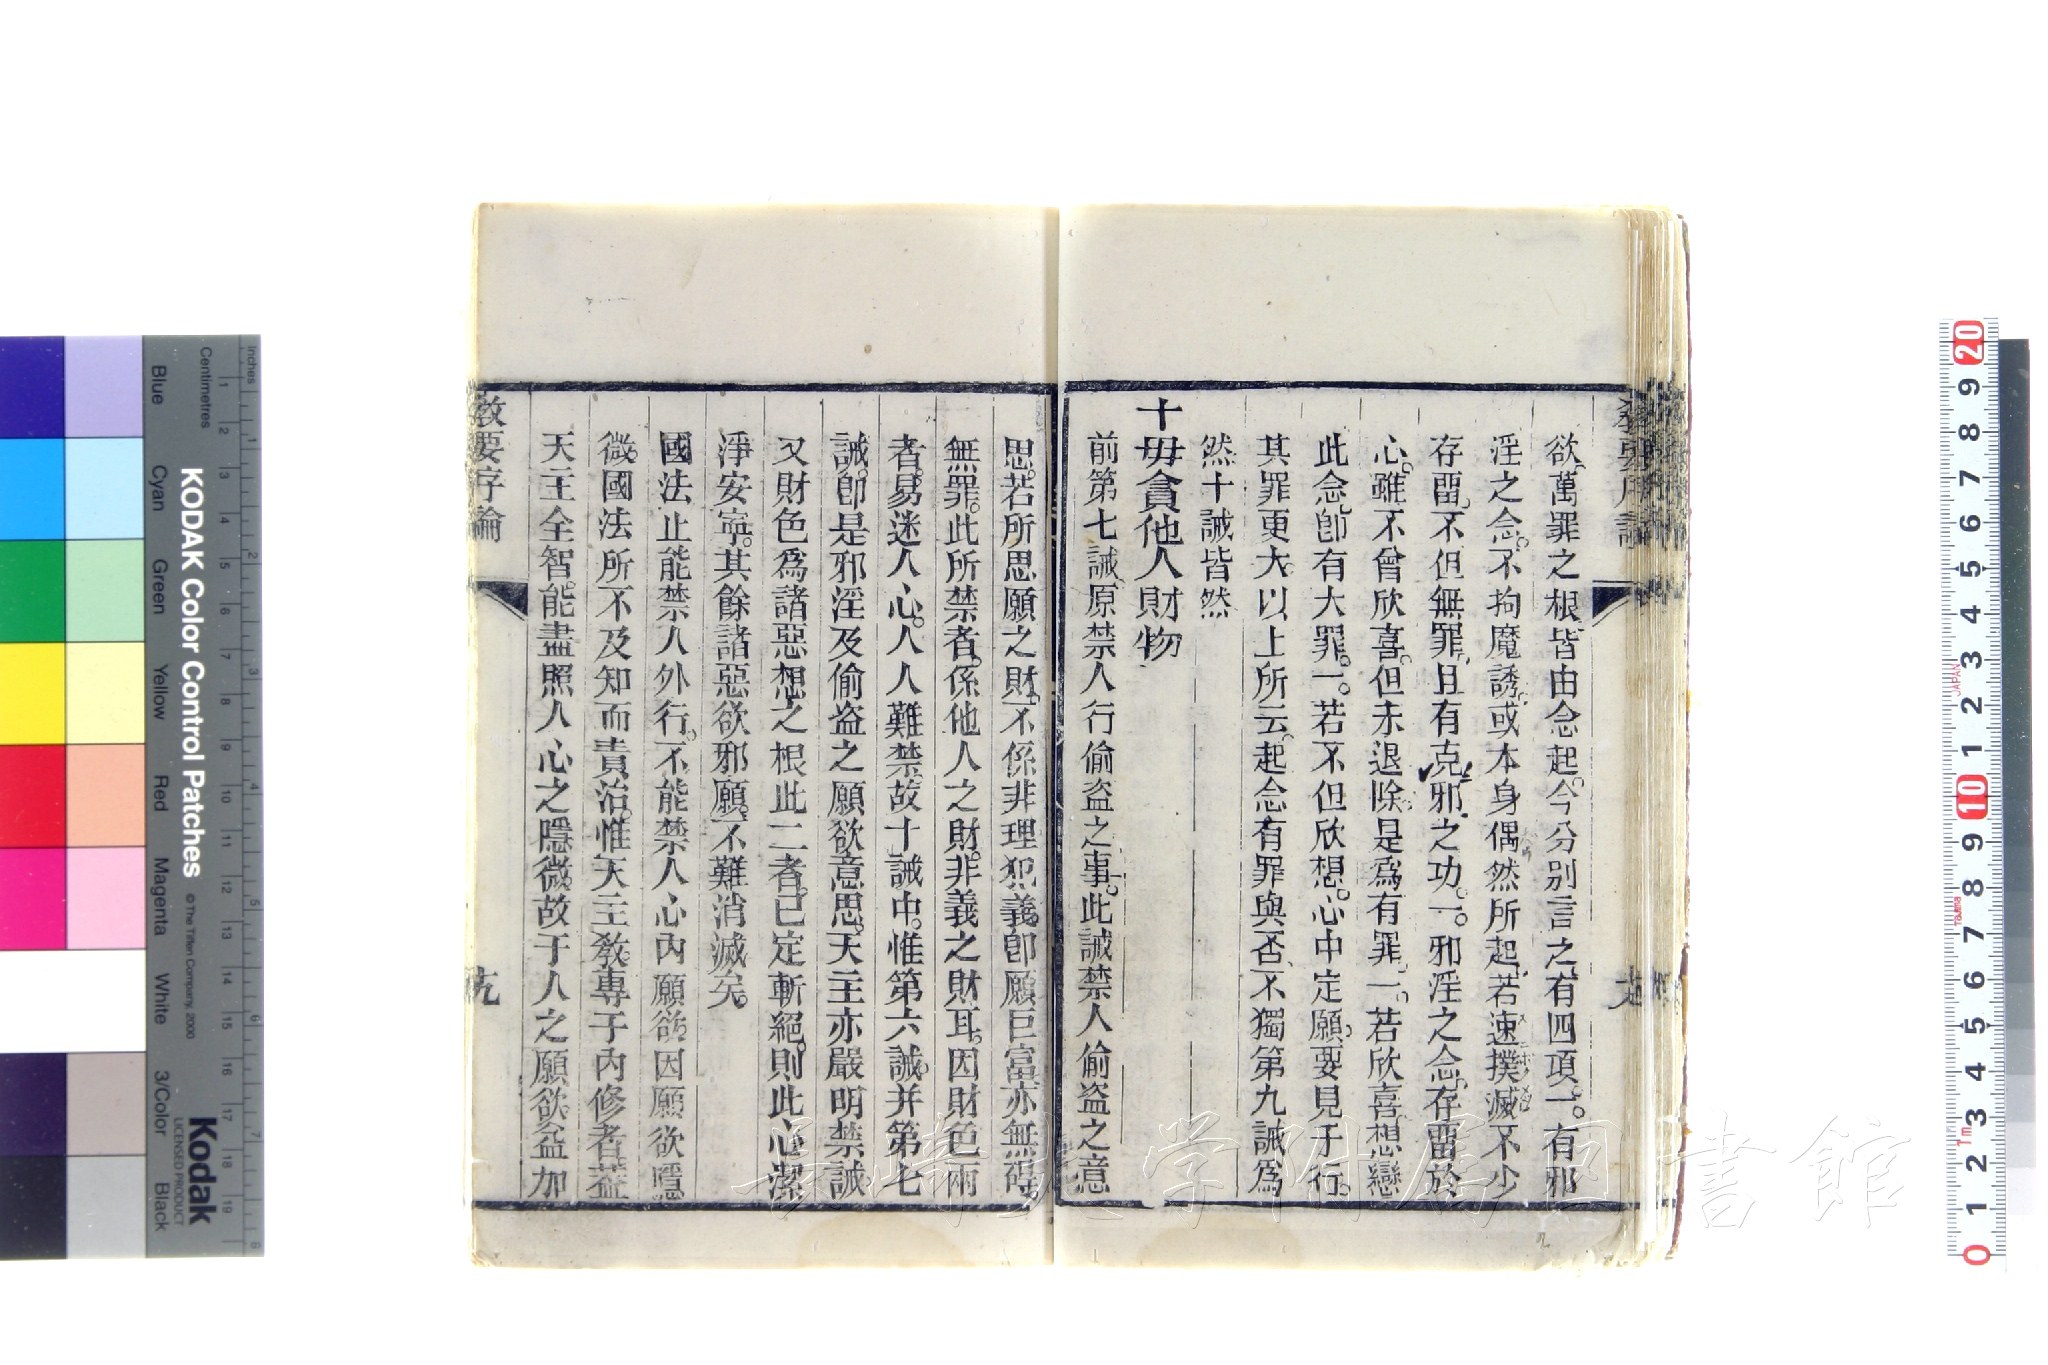 欲萬罪之根皆由念起。今分別言之有四項一。有邪
淫之念。不拘魔誘。或本身偶然所起。若速撲滅不少
存畱。不但無罪。且有克邪之功。一。邪淫之念。存畱於
心。雖不曾欣喜。但未退除。是爲有罪。一。若欣喜想戀
此念卽有大罪。一。若不但欣想。心中定願。要見于行。
其罪更大。以上所云。起念有罪與否。不獨第九誡爲
然十誡皆然
十毋貪他人財物
前第七誡原禁人行偷盜之事。此誡禁人偷盜之意
思。若所思願之財。不係非理犯義。卽願巨富亦無碍。
無罪。此所禁者。係他人之財。非義之財耳。因財色兩
者。易迷人心。人人難禁。故十誡中。惟第六誡。并第七
誡。卽是邪淫及偷盜之願欲意思。天主亦嚴明禁誡
又財色爲諸惡想之根此二者。已定斬絕。則此心潔
淨安寧。其餘諸惡欲邪願。不難消滅矣。
國法止能禁人外行。不能禁人心內願欲。因願欲隱
微。國法所不及知而責治。惟天主教。專于內修者。葢
天主全智。能盡照人心之隱微。故于人之願欲。益加
教要序論
九
KODAK Color Control Patches
© The Tiffen Company, 2000
Kodak
LICENSED PRODUCT
Inches
Centimetres
Blue
Cyan
Green
Yellow
Red
Magenta
White
3/Color
Black
1 2 3 4 5 6 7 8 9 10 11 12 13 14 15 16 17 18 19
20 9 8 7 6 5 4 3 2 1 10 9 8 7 6 5 4 3 2 1 0
JAPAN
Tajima
学附属図書館